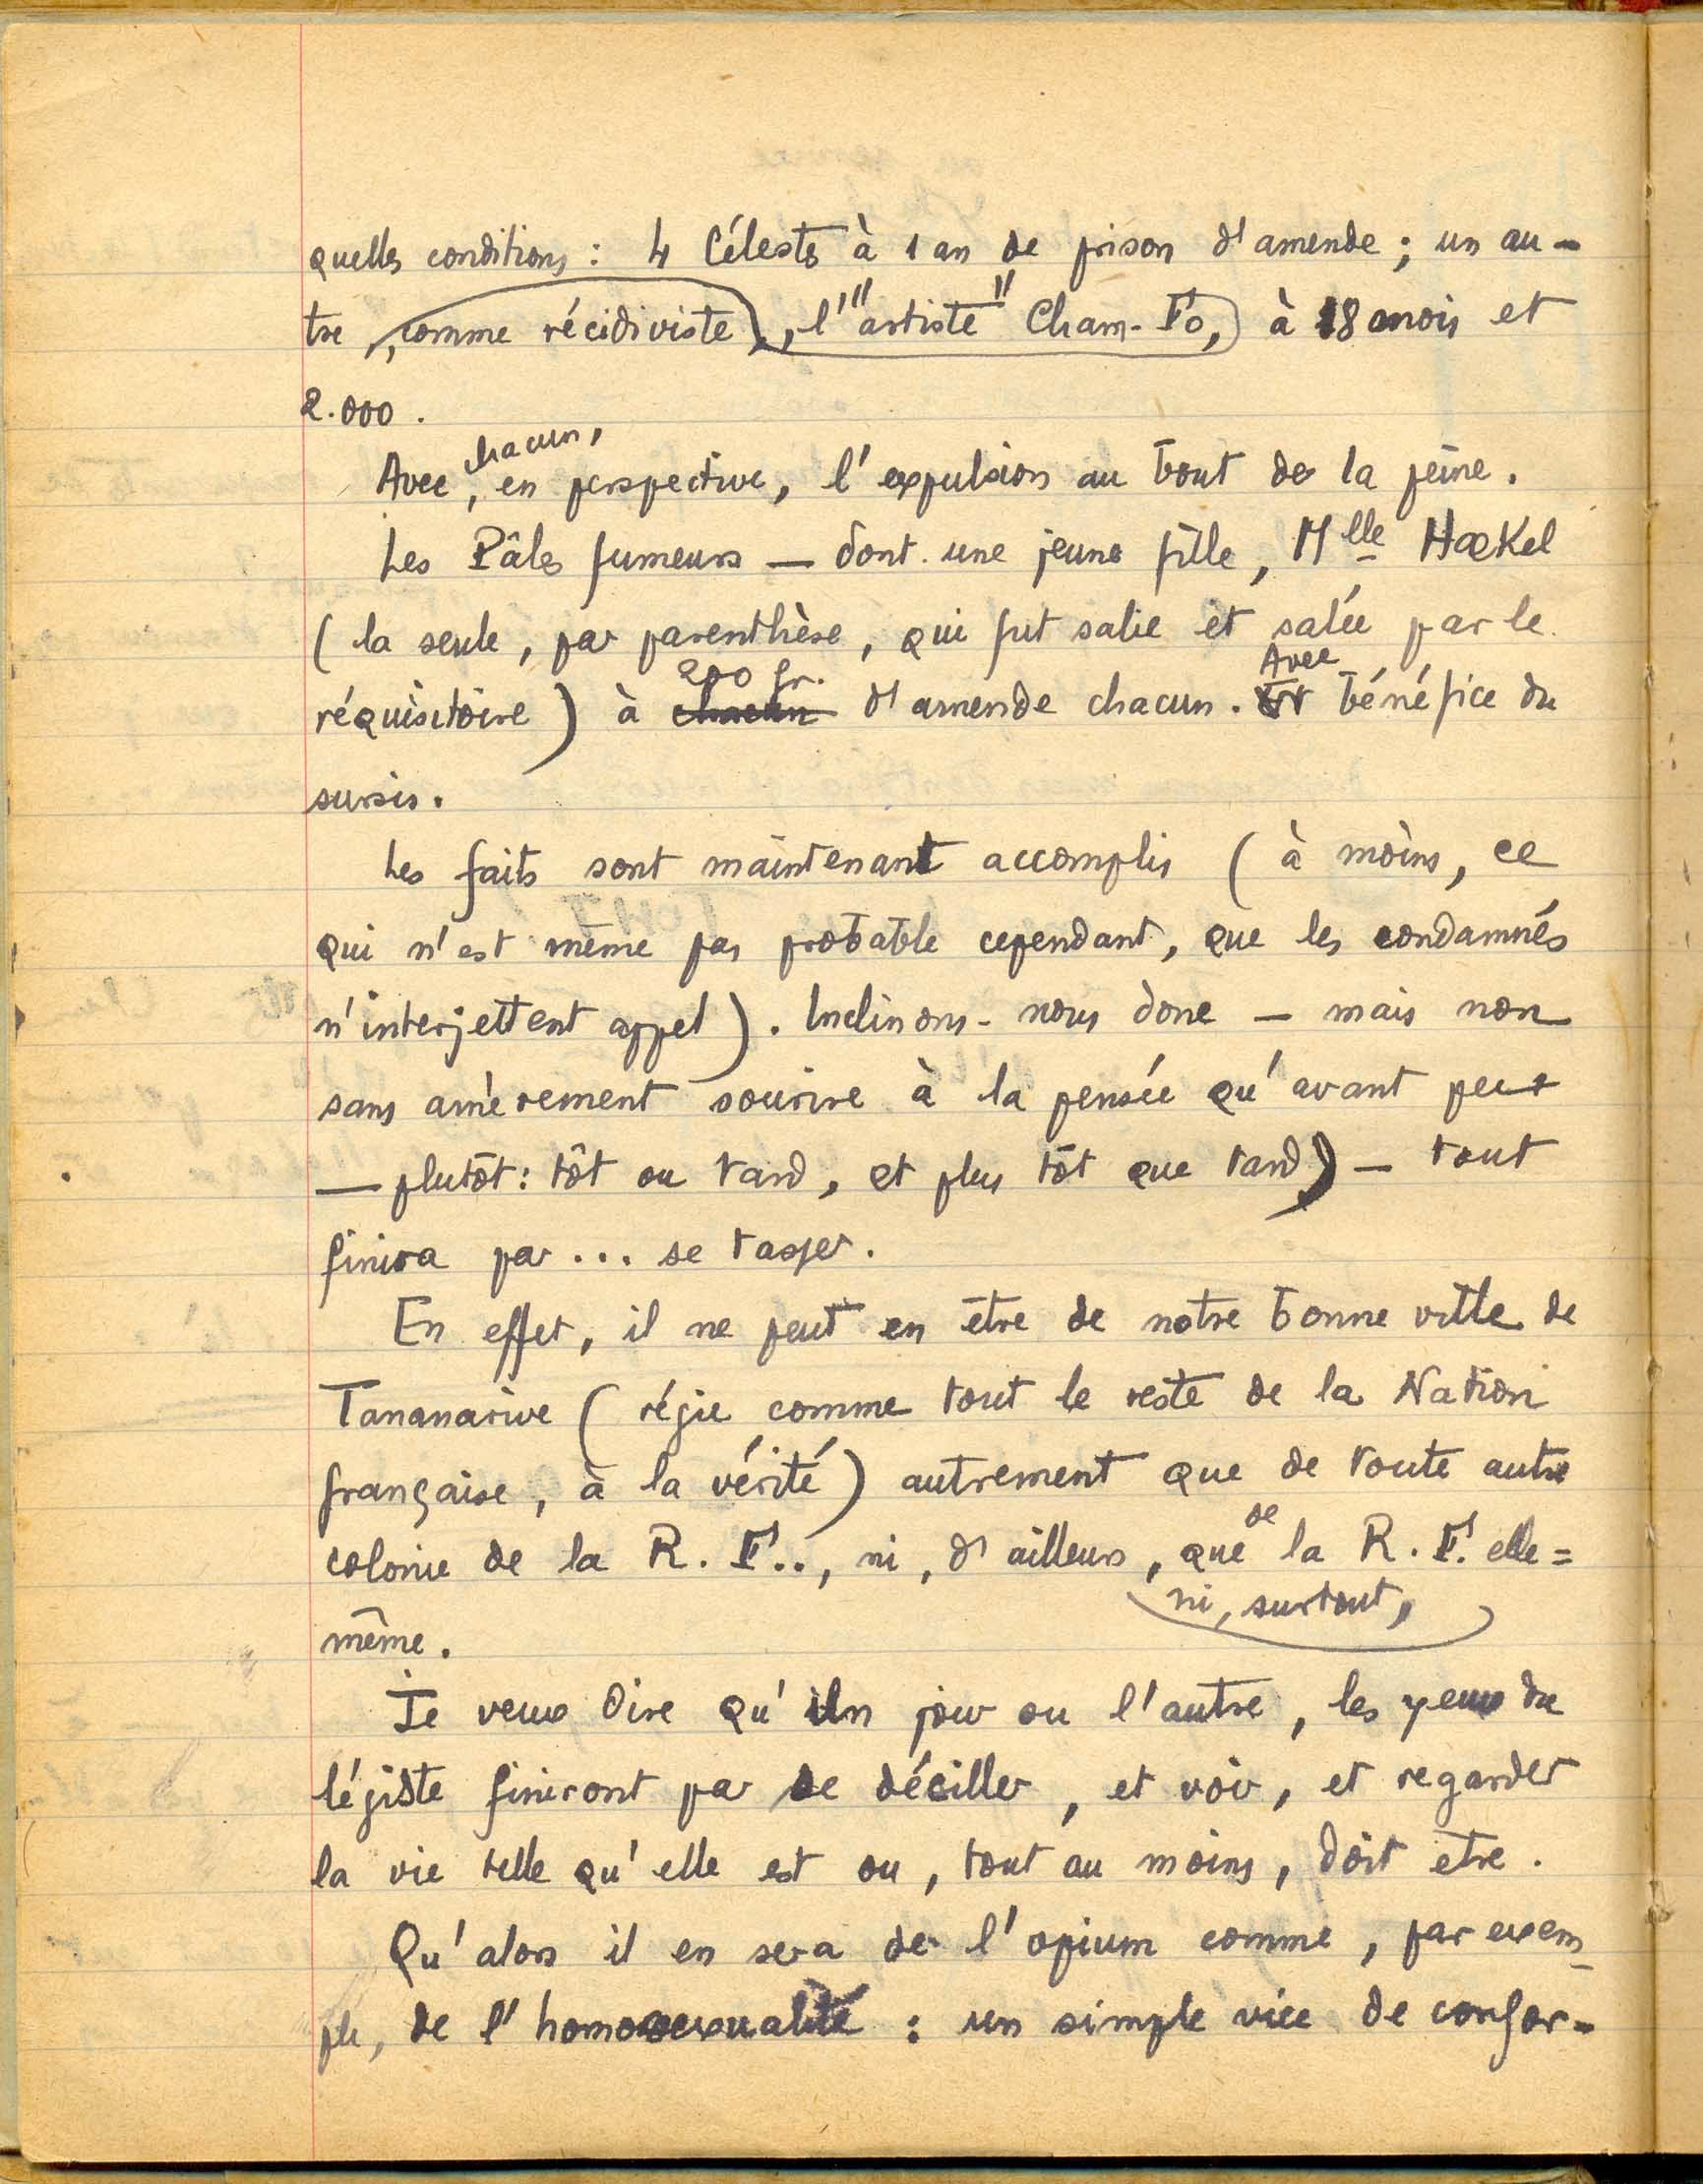 quelles conditions : 4 Célestes à 1 an de prison d'amende ; un au-
tre, comme récidiviste, l'"artiste" Cham-Fo, à 18 mois et
2.000.
chacun,
Avec, en perspective, l'expulsion au bout de la peine.
Les Pâles fumeurs — dont une jeune fille, Mlle Hœkel
(la seule, par parenthèse, qui fut salie et salée par le
200 fr. Avec
réquisitoire) à chacun d'amende chacun. Et bénéfice du
sursis.
Les faits sont maintenant accomplis (à moins, ce
qui n'est même pas probable cependant, que les condamnés
n'interjettent appel). Inclinons-nous donc — mais non
sans amèrement sourire à la pensée qu'avant peu
— plutôt : tôt ou tard, et plus tôt que tard) — tout
finira par... se tasser.
En effet, il ne peut en être de notre bonne ville de
Tananarive (régie comme tout le reste de la Nation
française, à la vérité) autrement que de toute autre
de
colonie de la R. F.., ni, d'ailleurs, que la R. F. elle=
ni, surtout,
même.
Je veux dire qu'un jour ou l'autre, les yeux du
légiste finiront par se déciller, et voir, et regarder
la vie telle qu'elle est ou, tout au moins, doit etre.
Qu'alors il en sera de l'opium comme, par exem-
ple, de l'homosexualité : un simple vice de confor-